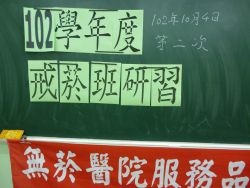 102學年度
102年10月4日
第二次
戒菸班研習
無菸醫院服務品